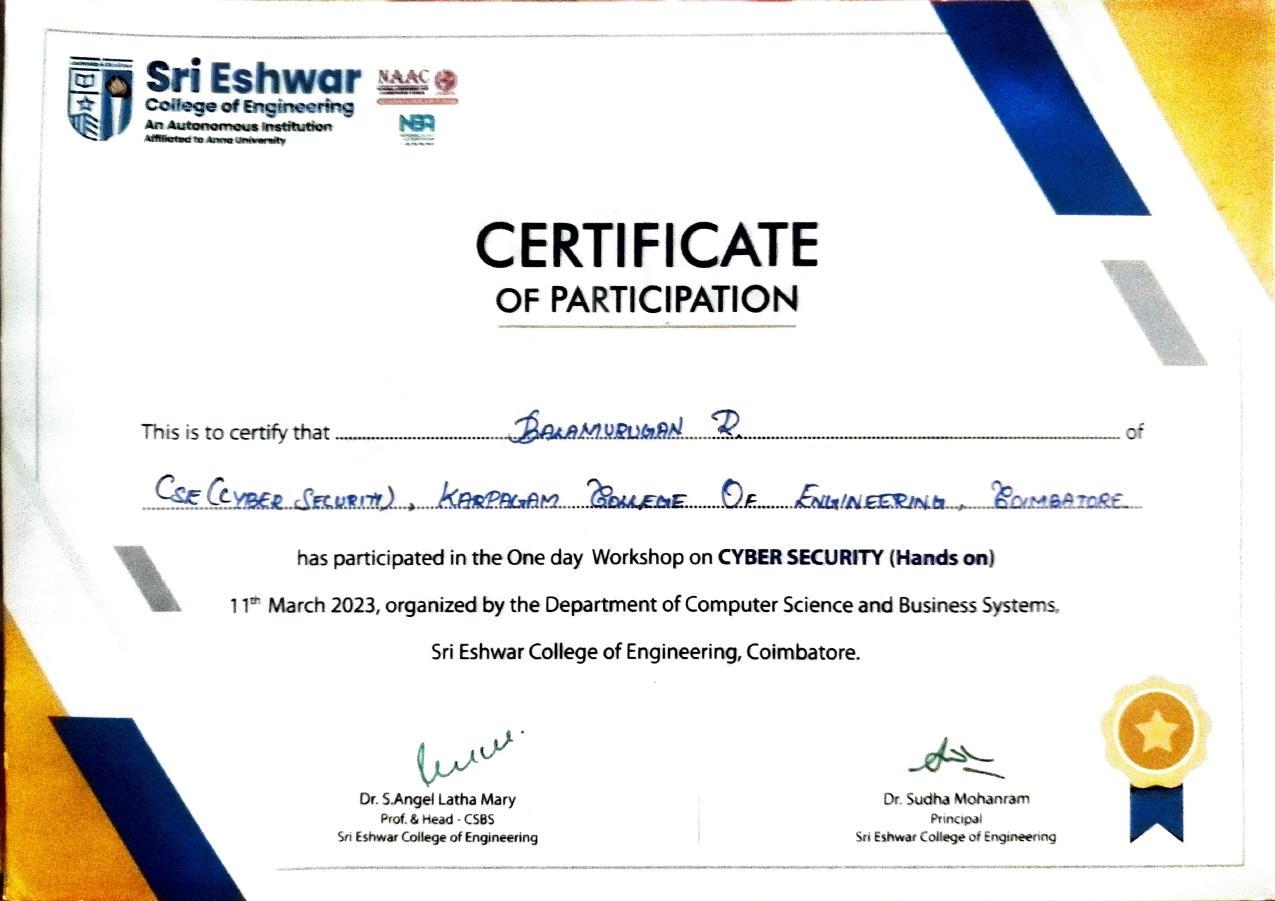 Sri Eshwar
College of Engineering
An Autonomous Institution
Affiliated to Anna University
NAAC
NBA
CERTIFICATE
OF PARTICIPATION
This is to certify that BALAMURUGAN R. of
CSE (CYBER SECURITY), KARPAGAM COLLEGE OF ENGINEERING, COIMBATORE
has participated in the One day Workshop on CYBER SECURITY (Hands on)
11th March 2023, organized by the Department of Computer Science and Business Systems,
Sri Eshwar College of Engineering, Coimbatore.
Dr. S.Angel Latha Mary
Prof. & Head - CSBS
Sri Eshwar College of Engineering
Dr. Sudha Mohanram
Principal
Sri Eshwar College of Engineering